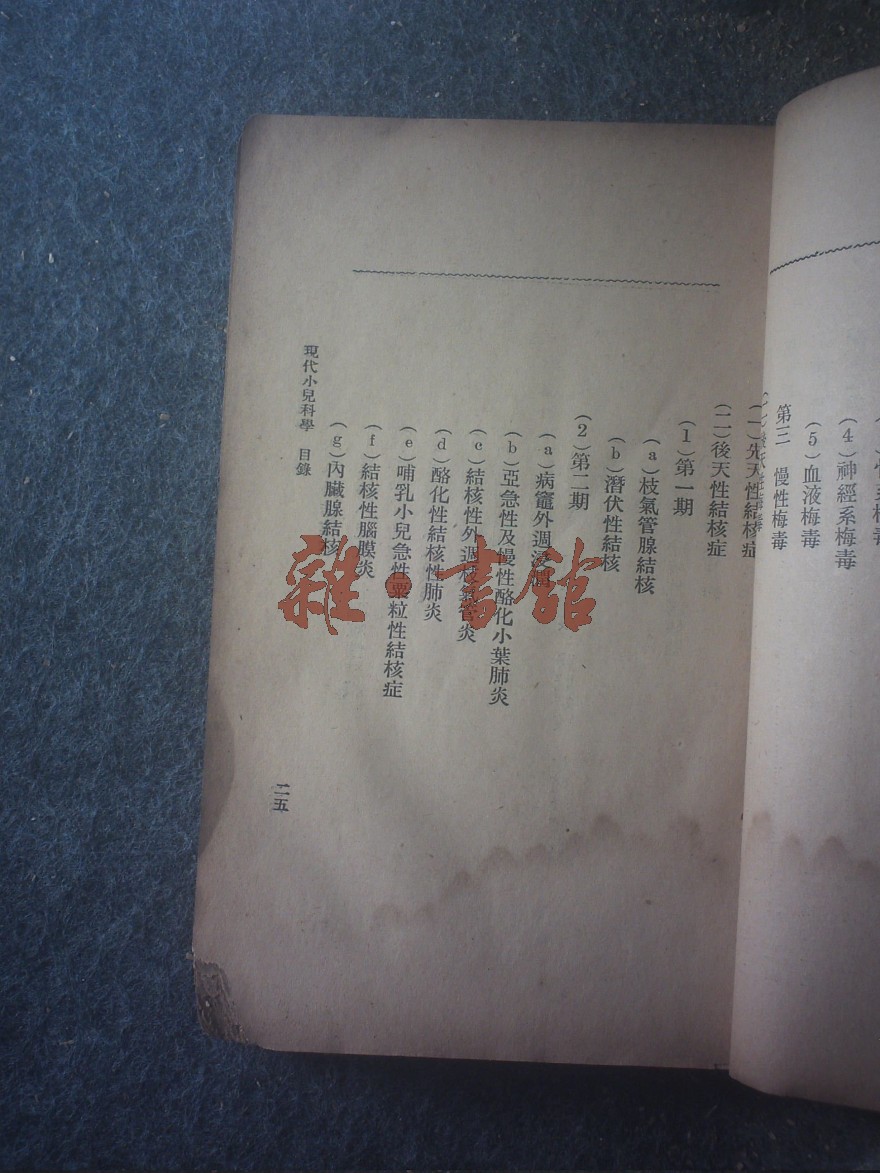 (4)神經系梅毒
(5)血液梅毒
第三 慢性梅毒
(一)先天性結核症
(二)後天性結核症
(1)第一期
(a)枝氣管腺結核
(b)潛伏性結核
(2)第二期
(a)病竈外週浸潤
(b)亞急性及慢性酪化小葉肺炎
(c)結核性外週枝氣管炎
(d)酪化性結核性肺炎
(e)哺乳小兒急性粟粒性結核症
(f)結核性腦膜炎
(g)內臟腺結核
現代小兒科學 目錄
二五
雜·書館